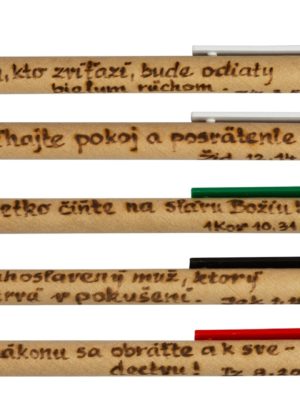 kto zvíťazí, bude odiaty
bielym rúchom.
hajte pokoj a posvätenie
Žid. 12.14
etko čiňte na slávu Božiu
1Kor 10.31
hoslavený muž, ktorý
rvá v pokušení. Jak 1.
ákonu sa obráťte a k sve-
dectvu! Iz 8.20